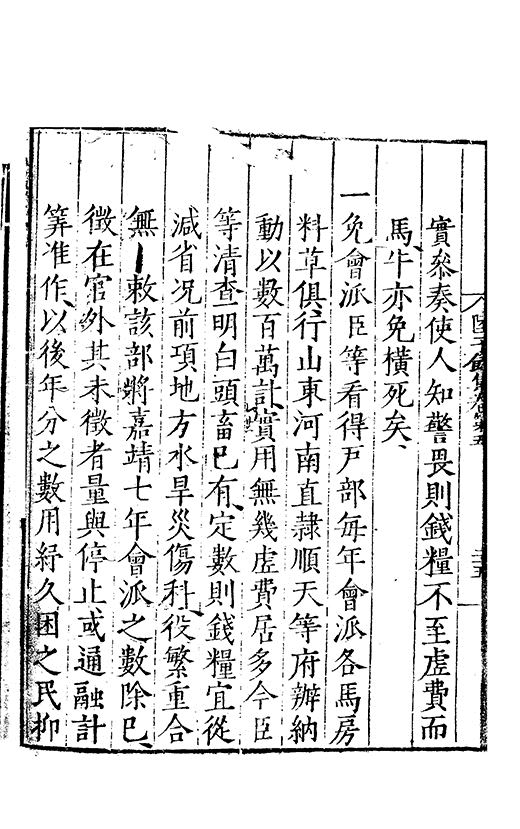 實參奏使人知警畏則錢糧不至虛費而
馬牛亦免橫死矣
一免會派臣等看得戸部每年會派各馬房
料草俱行山東河南直隷順天等府辦納
動以數百萬計實用無幾虛費居多今臣
等清查明白頭畜已有定數則錢糧宜從
減省况前項地方水旱災傷科役繁重合
無敕該部將嘉靖七年會派之數除已
徵在官外其未徵者量與停止或通融計
筭准作以後年分之數用紓久困之民抑